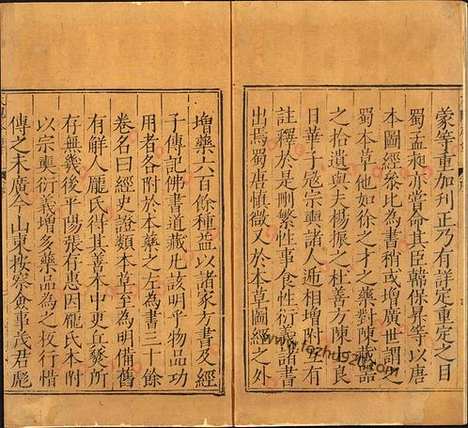 蒙等重加刋正乃有詳定重定之目
蜀孟昶亦嘗命其臣韓保昇等以唐
本圖經叅比為書稍或增廣世謂之
蜀本草他如徐之才之藥對陳藏器
之拾遺與夫楊振之杜善方陳士良
日華子冦宗奭諸人逓相增附又有
註釋於是刪繁性事食性衍義諸書
出焉蜀唐慎㣲又於本草圖經之外
增藥六百餘種益以諸家方書及經
子傳記佛書道藏凡該明乎物品功
用者各附於本藥之左為書三十餘
卷名曰經史證類本草至為明俻舊
有解人龐氏得其善本中更丘燹所
存無幾後平陽張存惠因龐氏本附
以宗奭衍義增多藥品為之板行惜
傳之未廣今山東按察僉事茂君彪